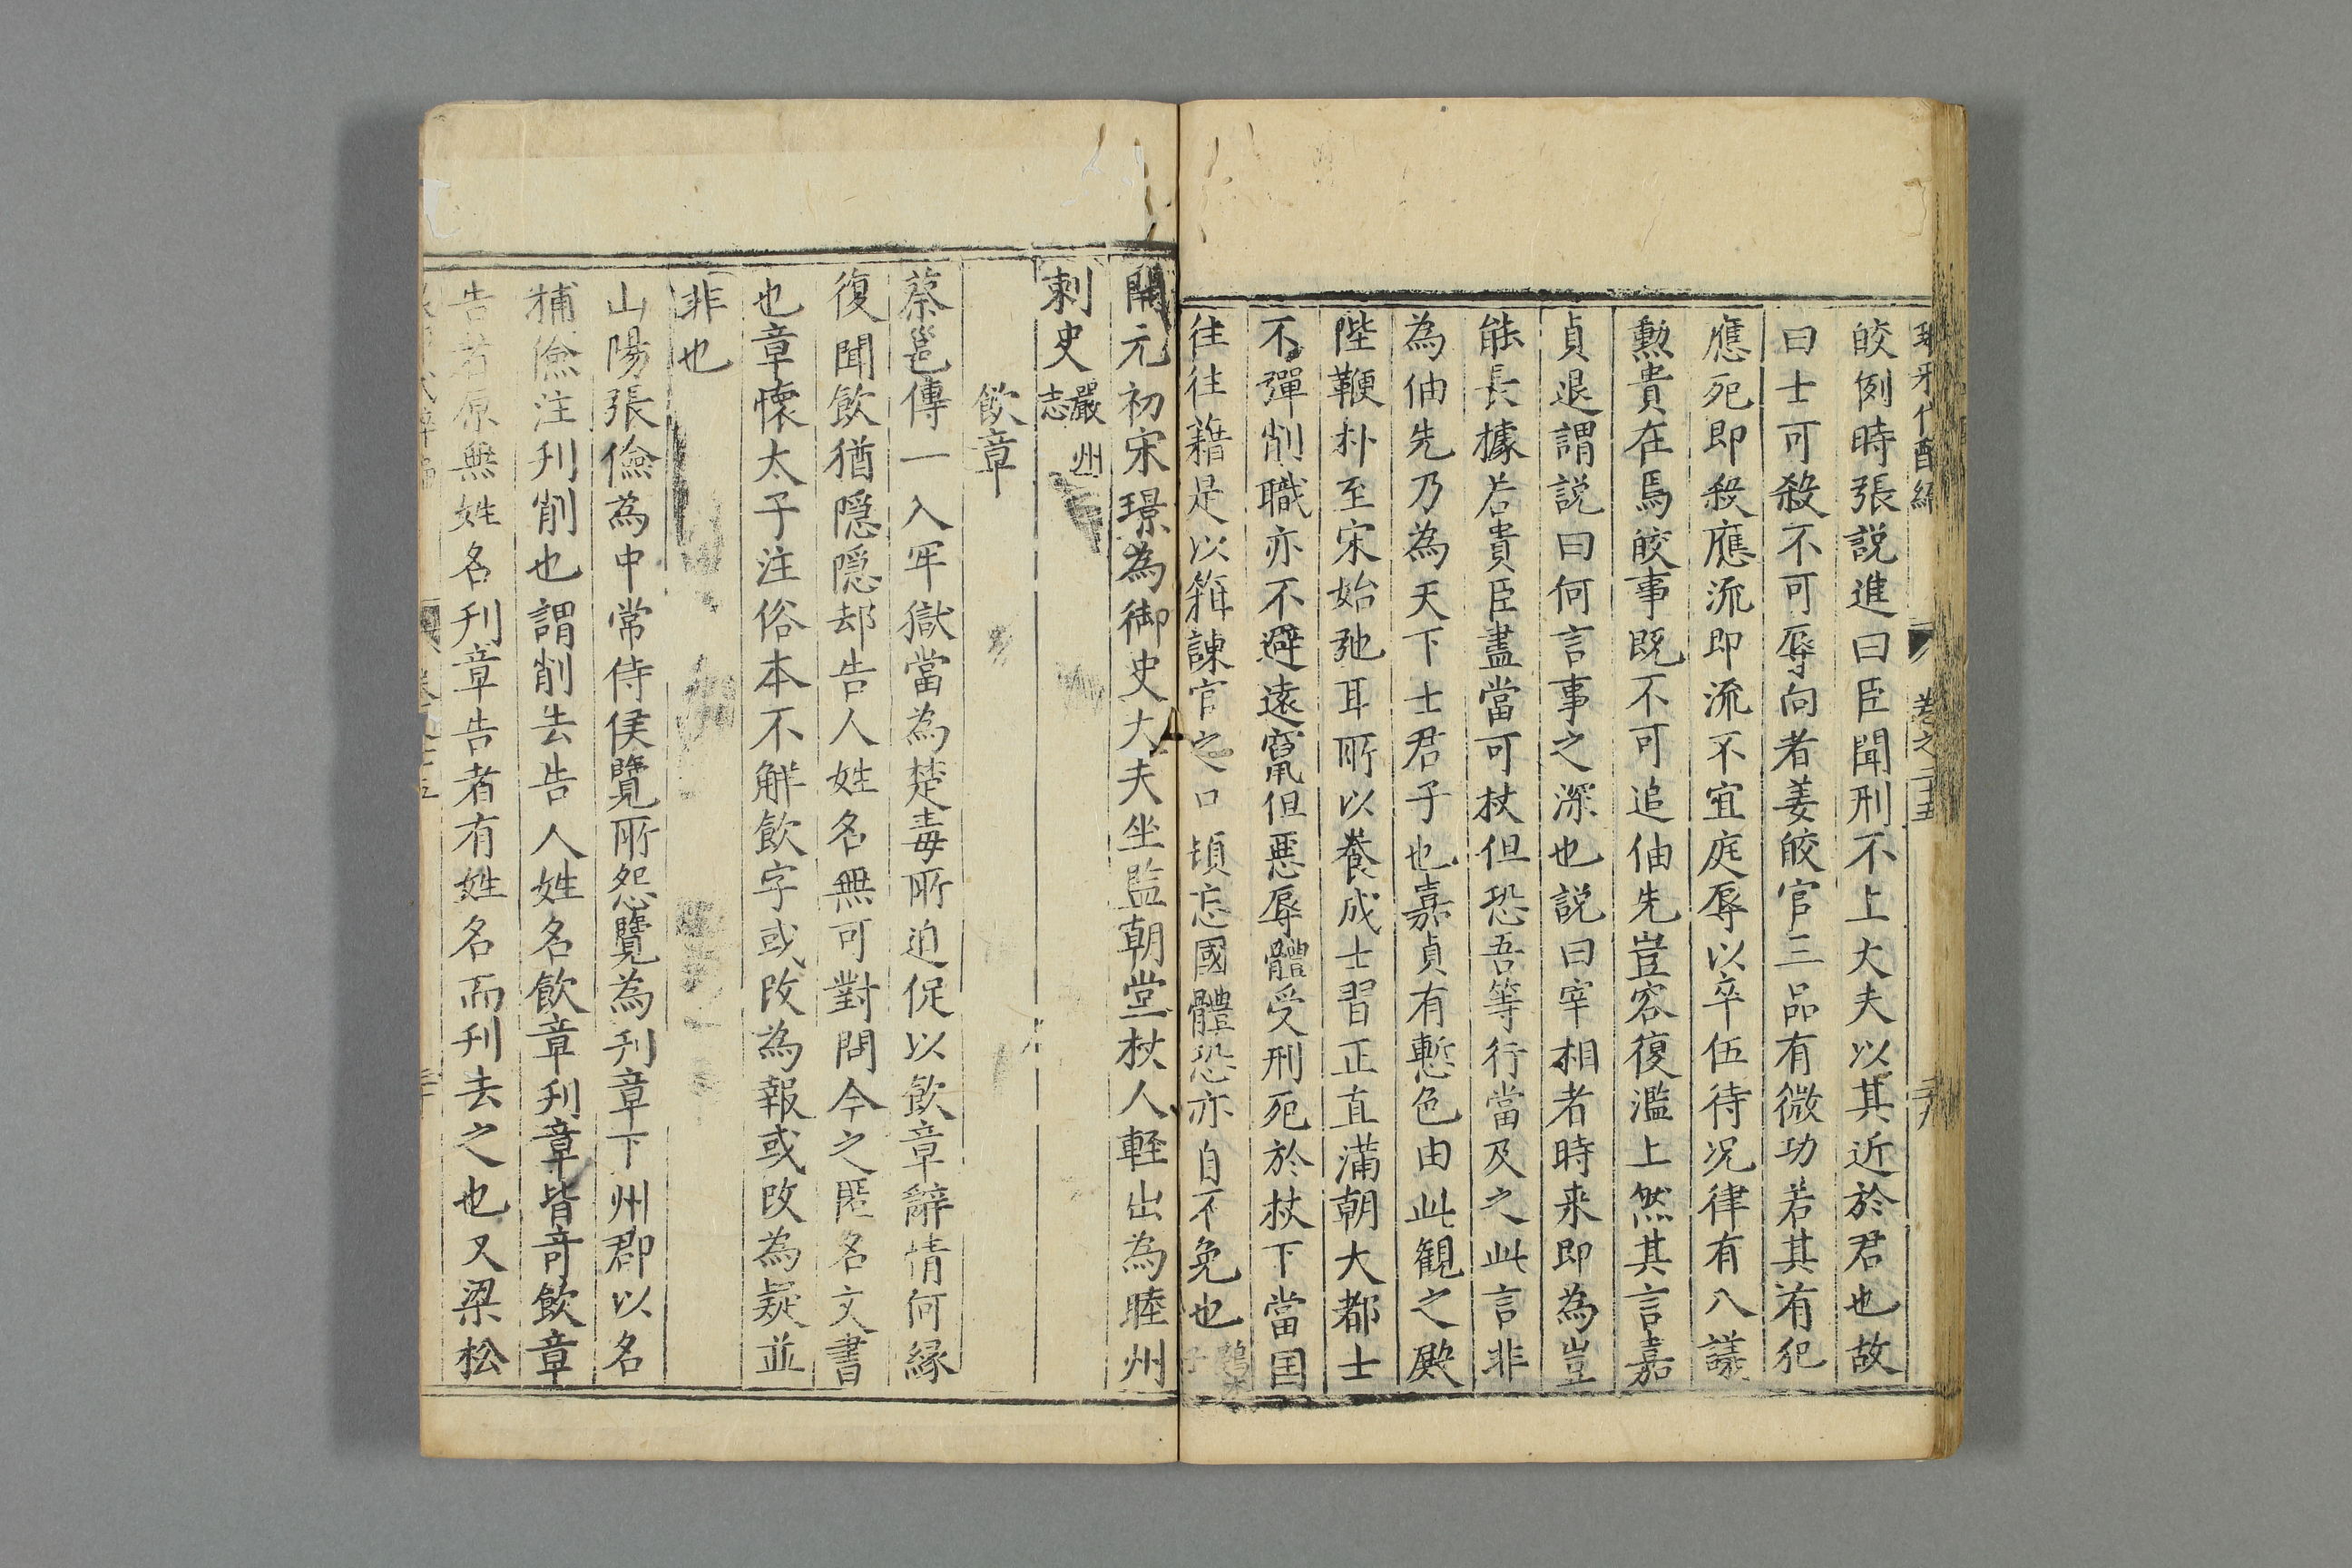 琅邪代醉編 卷之二十五 三十九
皎例時張説進曰臣聞刑不上大夫以其近於君也故
曰士可殺不可辱向者姜皎官三品有微功若其有犯
應死即殺應流即流不宜庭辱以卒伍待况律有八議
勲貴在焉皎事既不可追伷先豈容復濫上然其言嘉
貞退謂説曰何言事之深也説曰宰相者時来即為豈
能長據若貴臣盡當可杖但恐吾等行當及之此言非
為伷先乃為天下士君子也嘉貞有慙色由此観之殿
陛鞭朴至宋始弛耳所以養成士習正直滿朝大都士
不彈削職亦不避遠竄但惡辱體受刑死於杖下當国
往往藉是以箝諫官之口頓忘國體恐亦自不免也
開元初宋璟為御史大夫坐監朝堂杖人輕出為睦州
刺史嚴州志
飲章
蔡邕傳一入牢獄當為楚毒所迫促以飲章辭情何緣
復聞飲猶隱隱却告人姓名無可對問今之匿名文書
也章懷太子注俗本不解飲字或改為報或改為疑並
非也
山陽張儉為中常侍侯覽所怨覽為刋章下州郡以名
捕儉注刋削也謂削去告人姓名飲章刋章皆奇飲章
告者原無姓名刋章告者有姓名而刋去之也又梁松